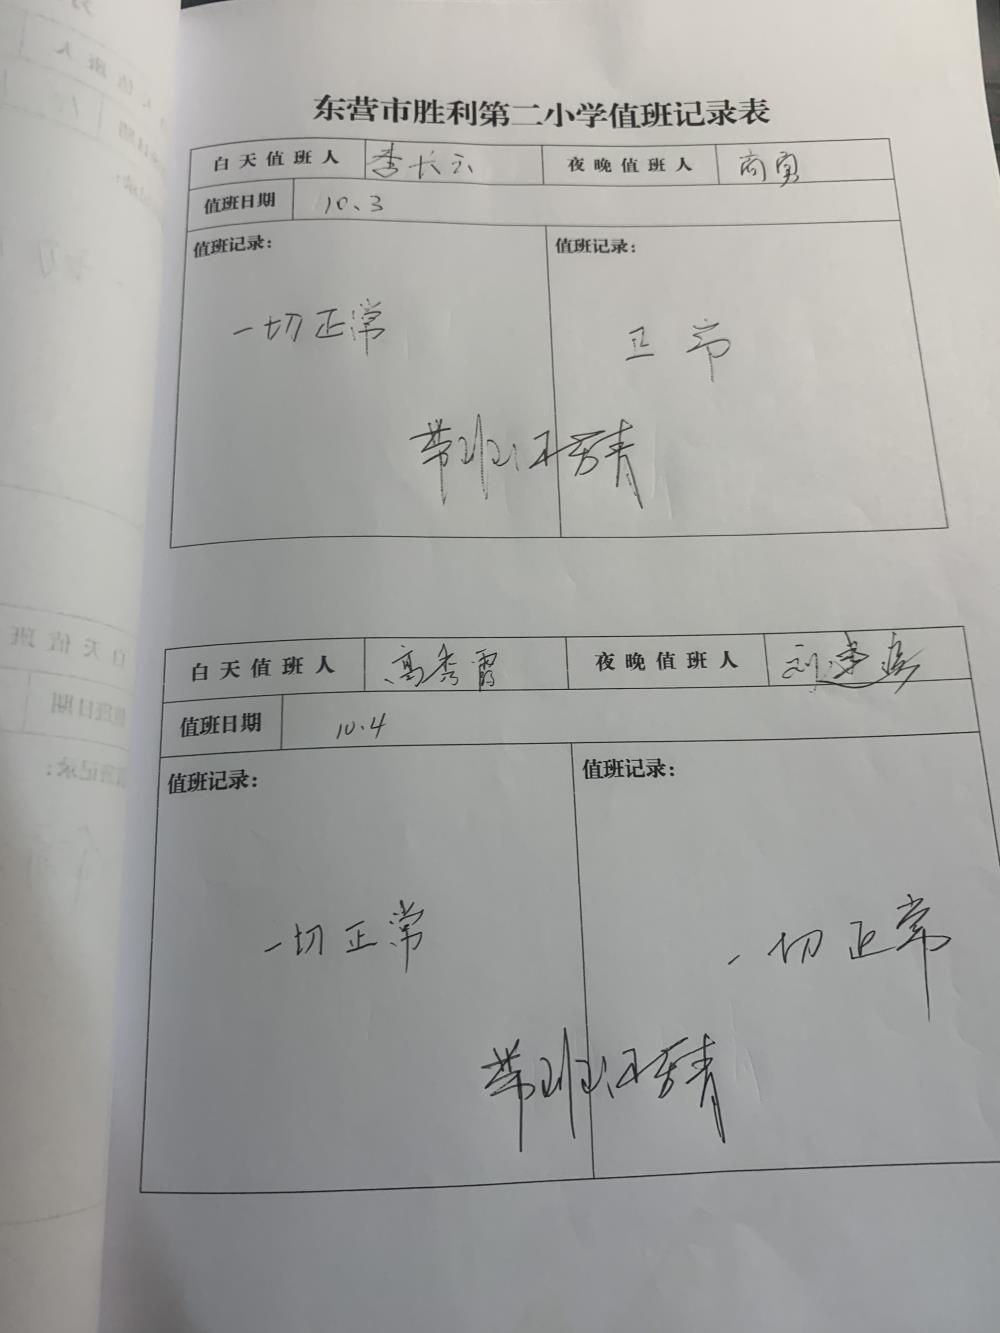 东营市胜利第二小学值班记录表
白天值班人 李长云 夜晚值班人 商勇
值班日期 10.3
值班记录: 值班记录:
一切正常 正常
带班:
白天值班人 高秀霞 夜晚值班人
值班日期 10.4
值班记录: 值班记录:
一切正常 一切正常
带班: